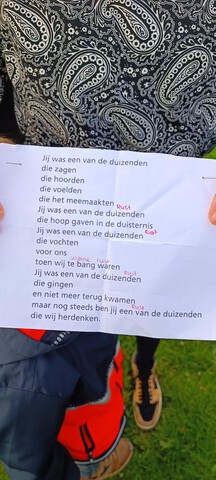 Jij was een van de duizenden
die zagen
die hoorden
die voelden
die het meemaakten Rust
Jij was een van de duizenden
die hoop gaven in de duisternis
Jij was een van de duizenden
die vochten
voor ons
toen wij te bang waren
Jij was een van de duizenden
die gingen
en niet meer terug kwamen
maar nog steeds ben jij een van de duizenden
die wij herdenken.